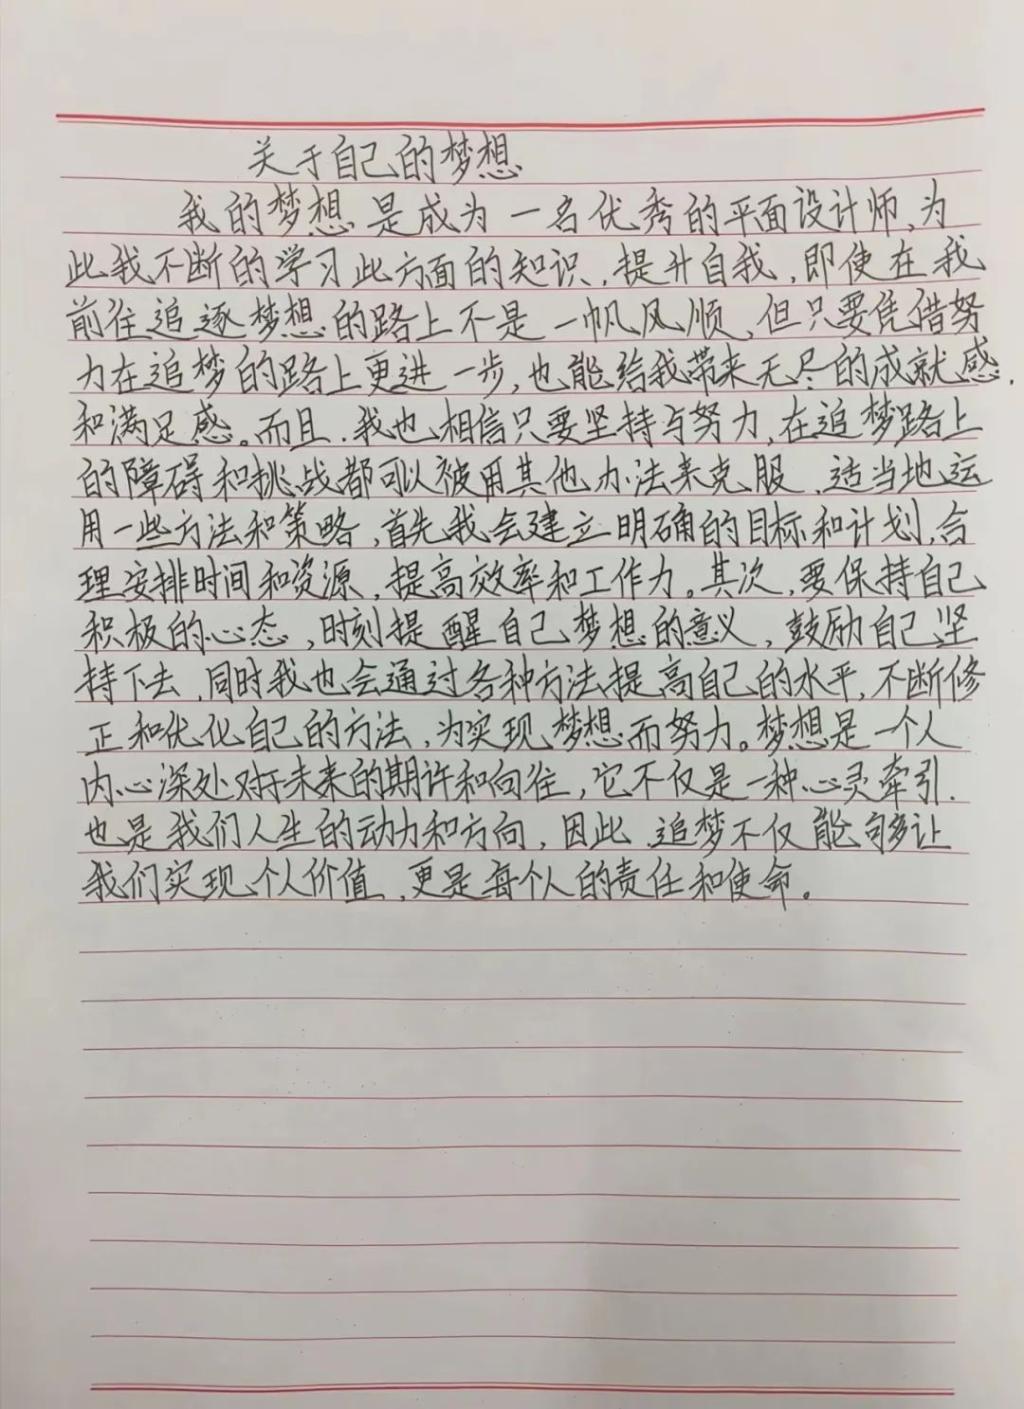 关于自己的梦想
我的梦想是成为一名优秀的平面设计师,为
此我不断的学习此方面的知识,提升自我,即使在我
前往追逐梦想的路上不是一帆风顺,但只要凭借努
力在追梦的路上更进一步,也能给我带来无尽的成就感,
和满足感。而且,我也相信只要坚持与努力,在追梦路上
的障碍和挑战都可以被用其他办法来克服,适当地运
用一些方法和策略,首先我会建立明确的目标和计划,合
理安排时间和资源,提高效率和工作力。其次,要保持自己
积极的心态,时刻提醒自己梦想的意义,鼓励自己坚
持下去,同时我也会通过各种方法提高自己的水平,不断修
正和优化自己的方法,为实现梦想而努力。梦想是一个人
内心深处对于未来的期许和向往,它不仅是一种心灵牵引,
也是我们人生的动力和方向,因此,追梦不仅能够让
我们实现个人价值,更是每个人的责任和使命。